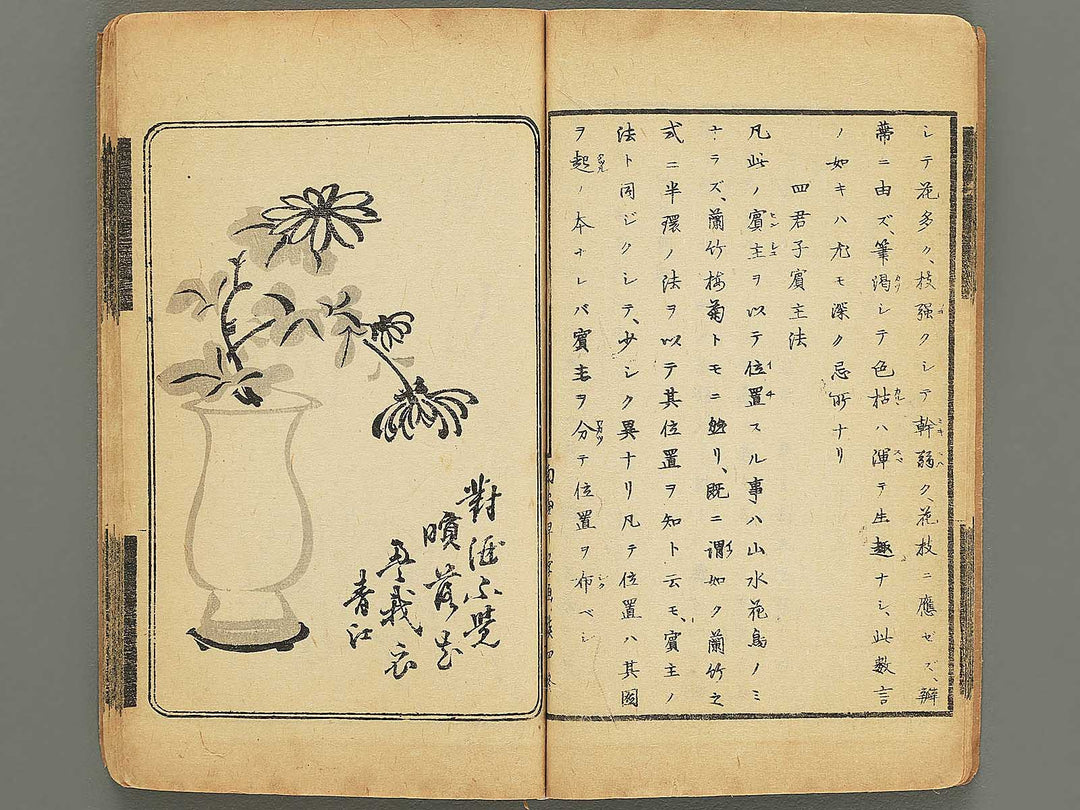 シテ花多ク、枝强クシテ幹弱ク、花枝ニ應セズ、瓣
蔕ニ由ズ、筆渇シテ色枯ハ渾テ生趣ナシ、此數言
ノ如キハ尤モ深ク忌所ナリ
四君子賓主法
凡此ノ賓主ヲ以テ位置スル事ハ山水花鳥ノミ
ナラズ、蘭竹梅菊トモニ然リ、既ニ謂如ク蘭竹之
式ニ半環ノ法ヲ以テ其位置ヲ知ト云モ、賓主ノ
法ト同ジクシテ、少シク異ナリ凡テ位置ハ其圖
ヲ起ノ本ナレバ賓主ヲ分テ位置ヲ布ベシ
對酒不覺
暝落花
盈我衣
青江